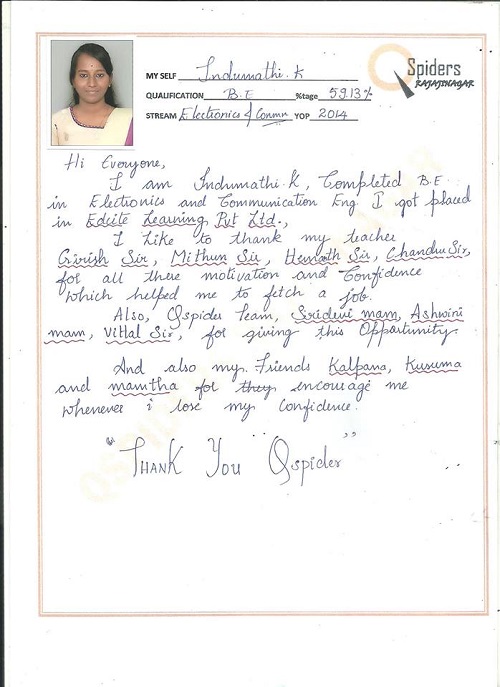 MY SELF Indumathi.K
QSpiders
RAJAJINAGAR
QUALIFICATION B.E %tage 59.13%
STREAM Electronics & Commn YOP 2014
Hi Everyone,
I am Indumathi.K, Completed B.E
in Electronics and Communication Eng I got placed
in Edcite Learning Pvt Ltd.,
I like to thank my teacher
Girish Sir, Mithun Sir, Hemath Sir, Chandru Sir,
for all there motivation and Confidence
which helped me to fetch a job.
Also, Qspider Team, Siridevi mam, Ashwini
mam, Vittal Sir, for giving this Opportunity.
And also my Friends Kalpana, Kusuma
and mamtha for they encourage me
whenever i lose my Confidence.
"THANK YOU Qspider"